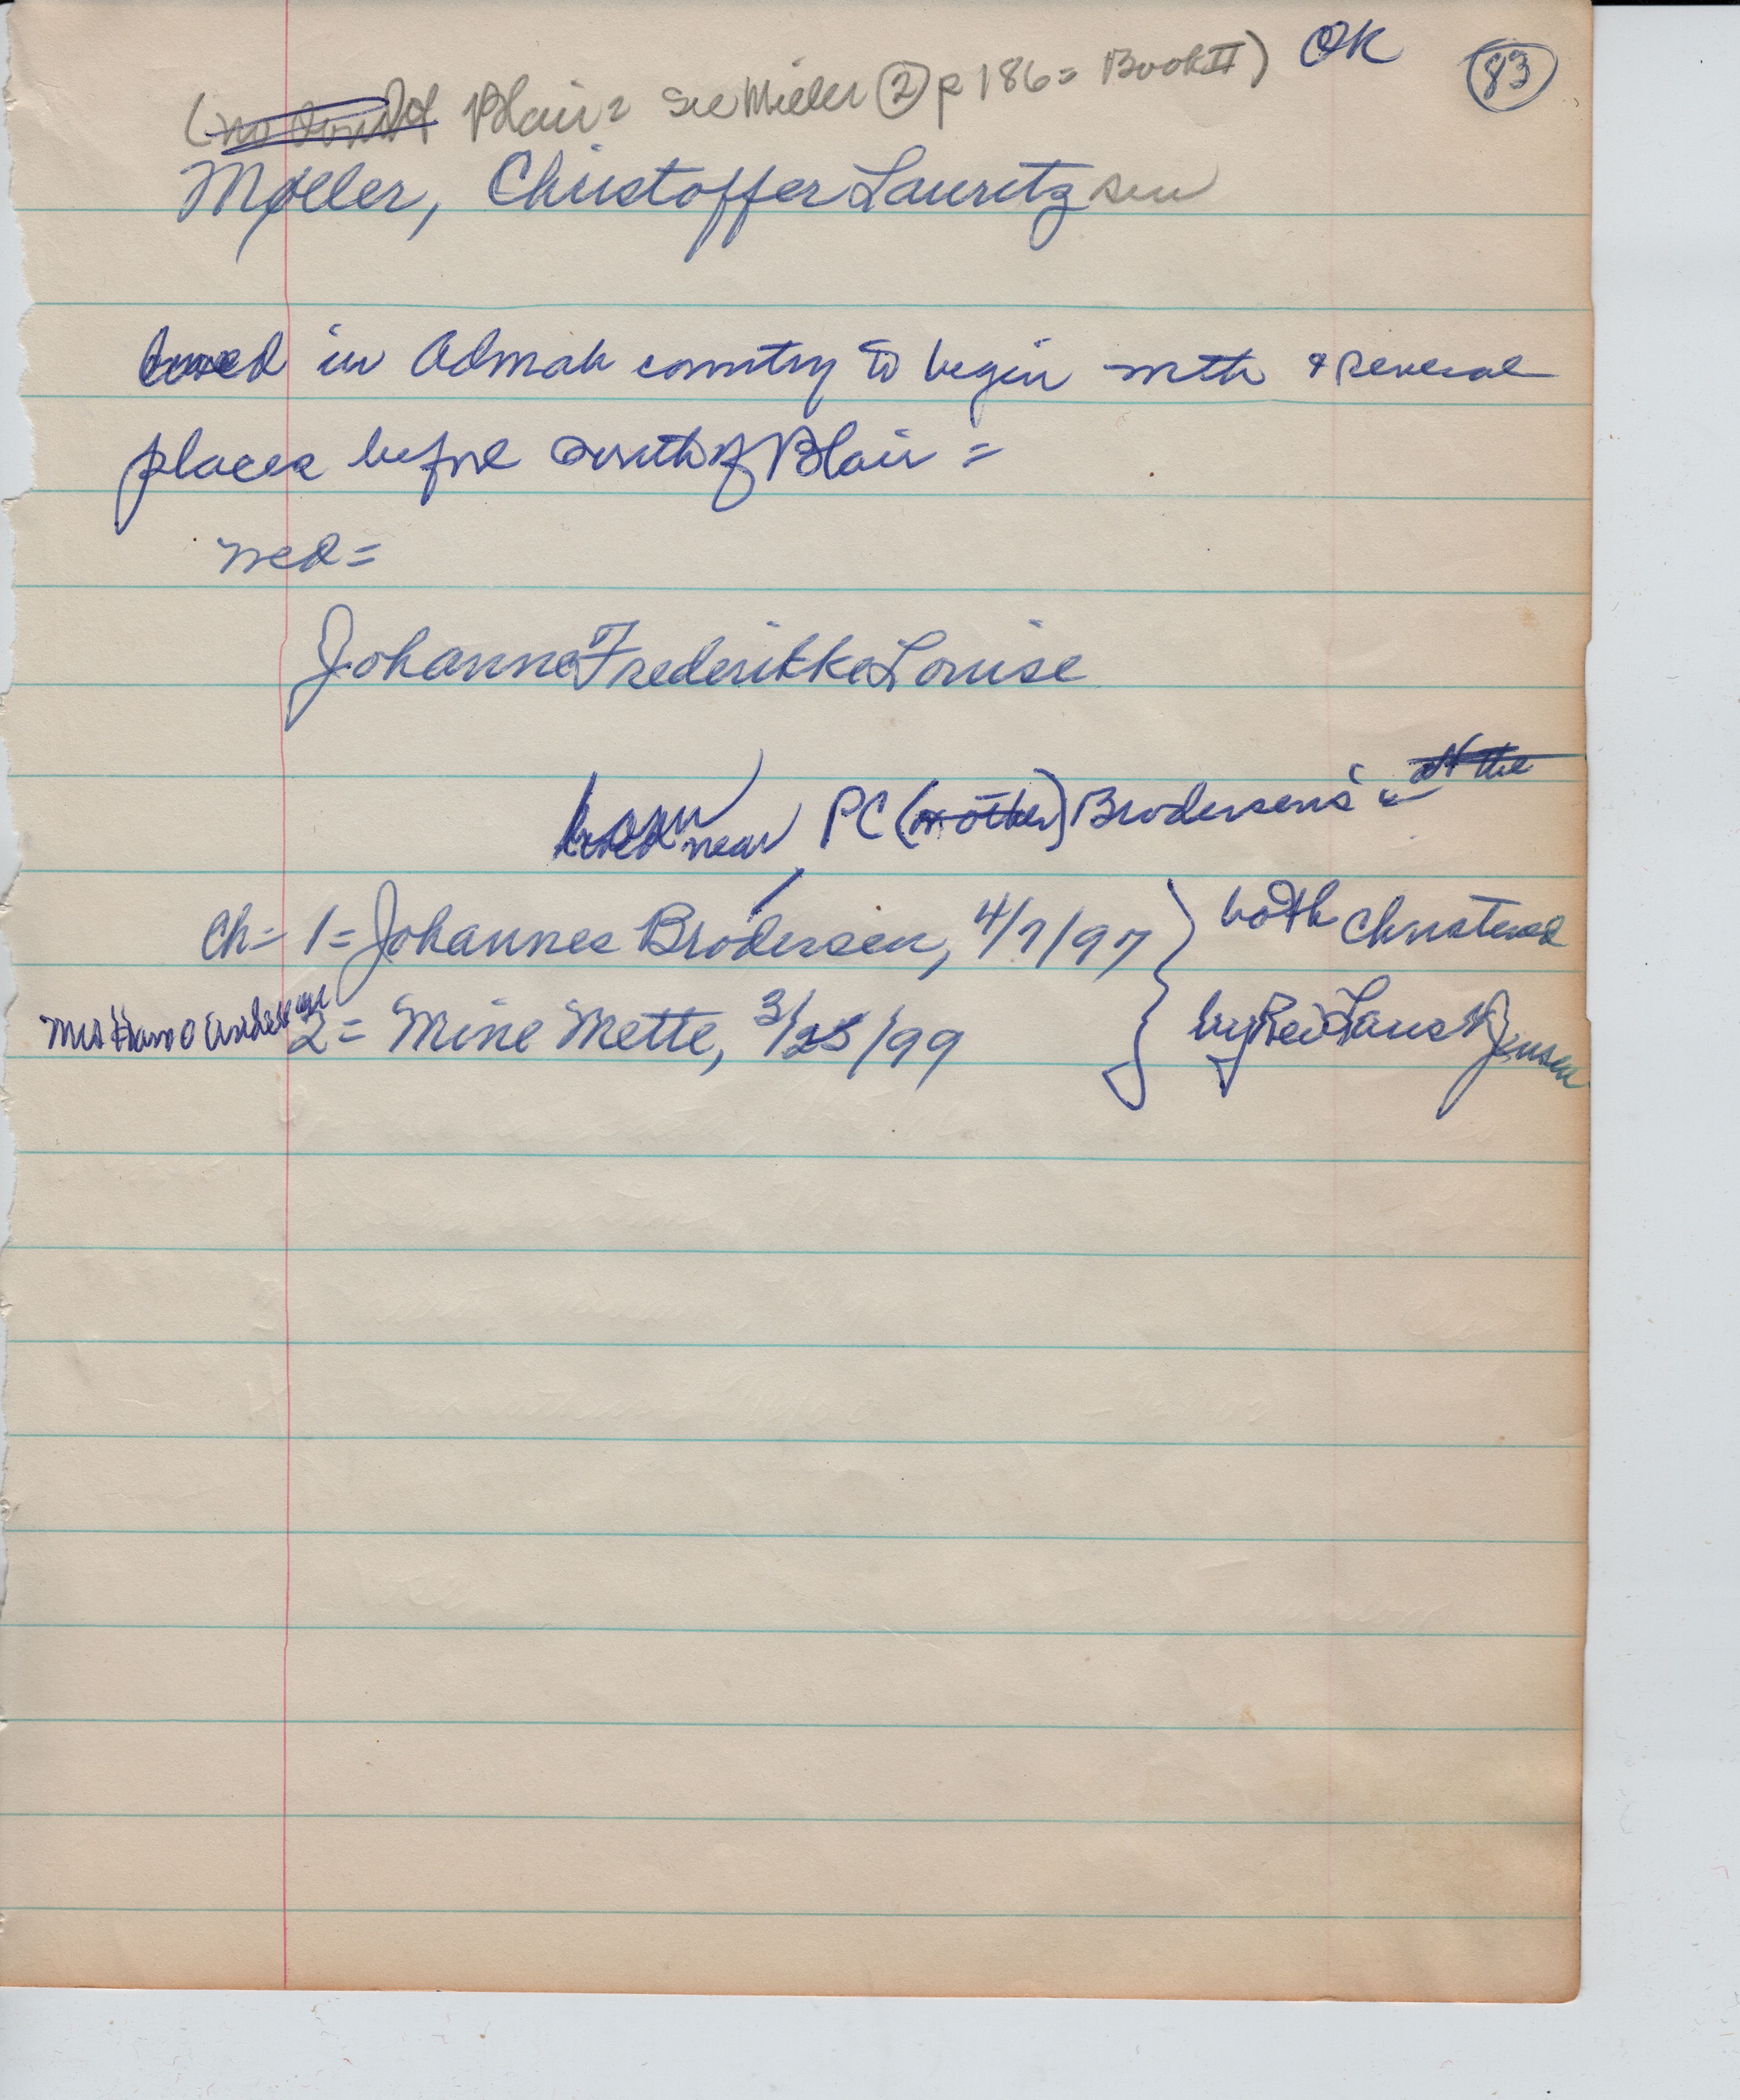 OK 83
Blair = see Miller 2 p 186 = Book II)
Møller, Christoffer Lauritzsen
in Admah country to begin with + several
places before south of Blair =
med =
Johanne Frederikke Louise
near PC (mother) Brodersens at the
Ch = 1 = Johannes Brodersen, 4/7/97 } both Christened
Mrs Hans Andersen 2 = Mine Mette, 3/25/99 by Rev Laus K Jensen